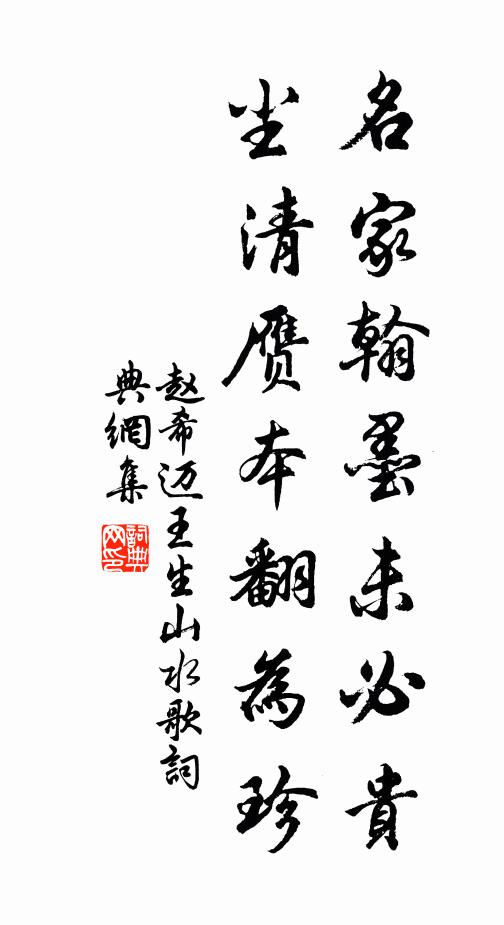 名家翰墨未必貴
尘清赝本翻為珍
赵希迈王生山水歌詞
典網集
詞典网印